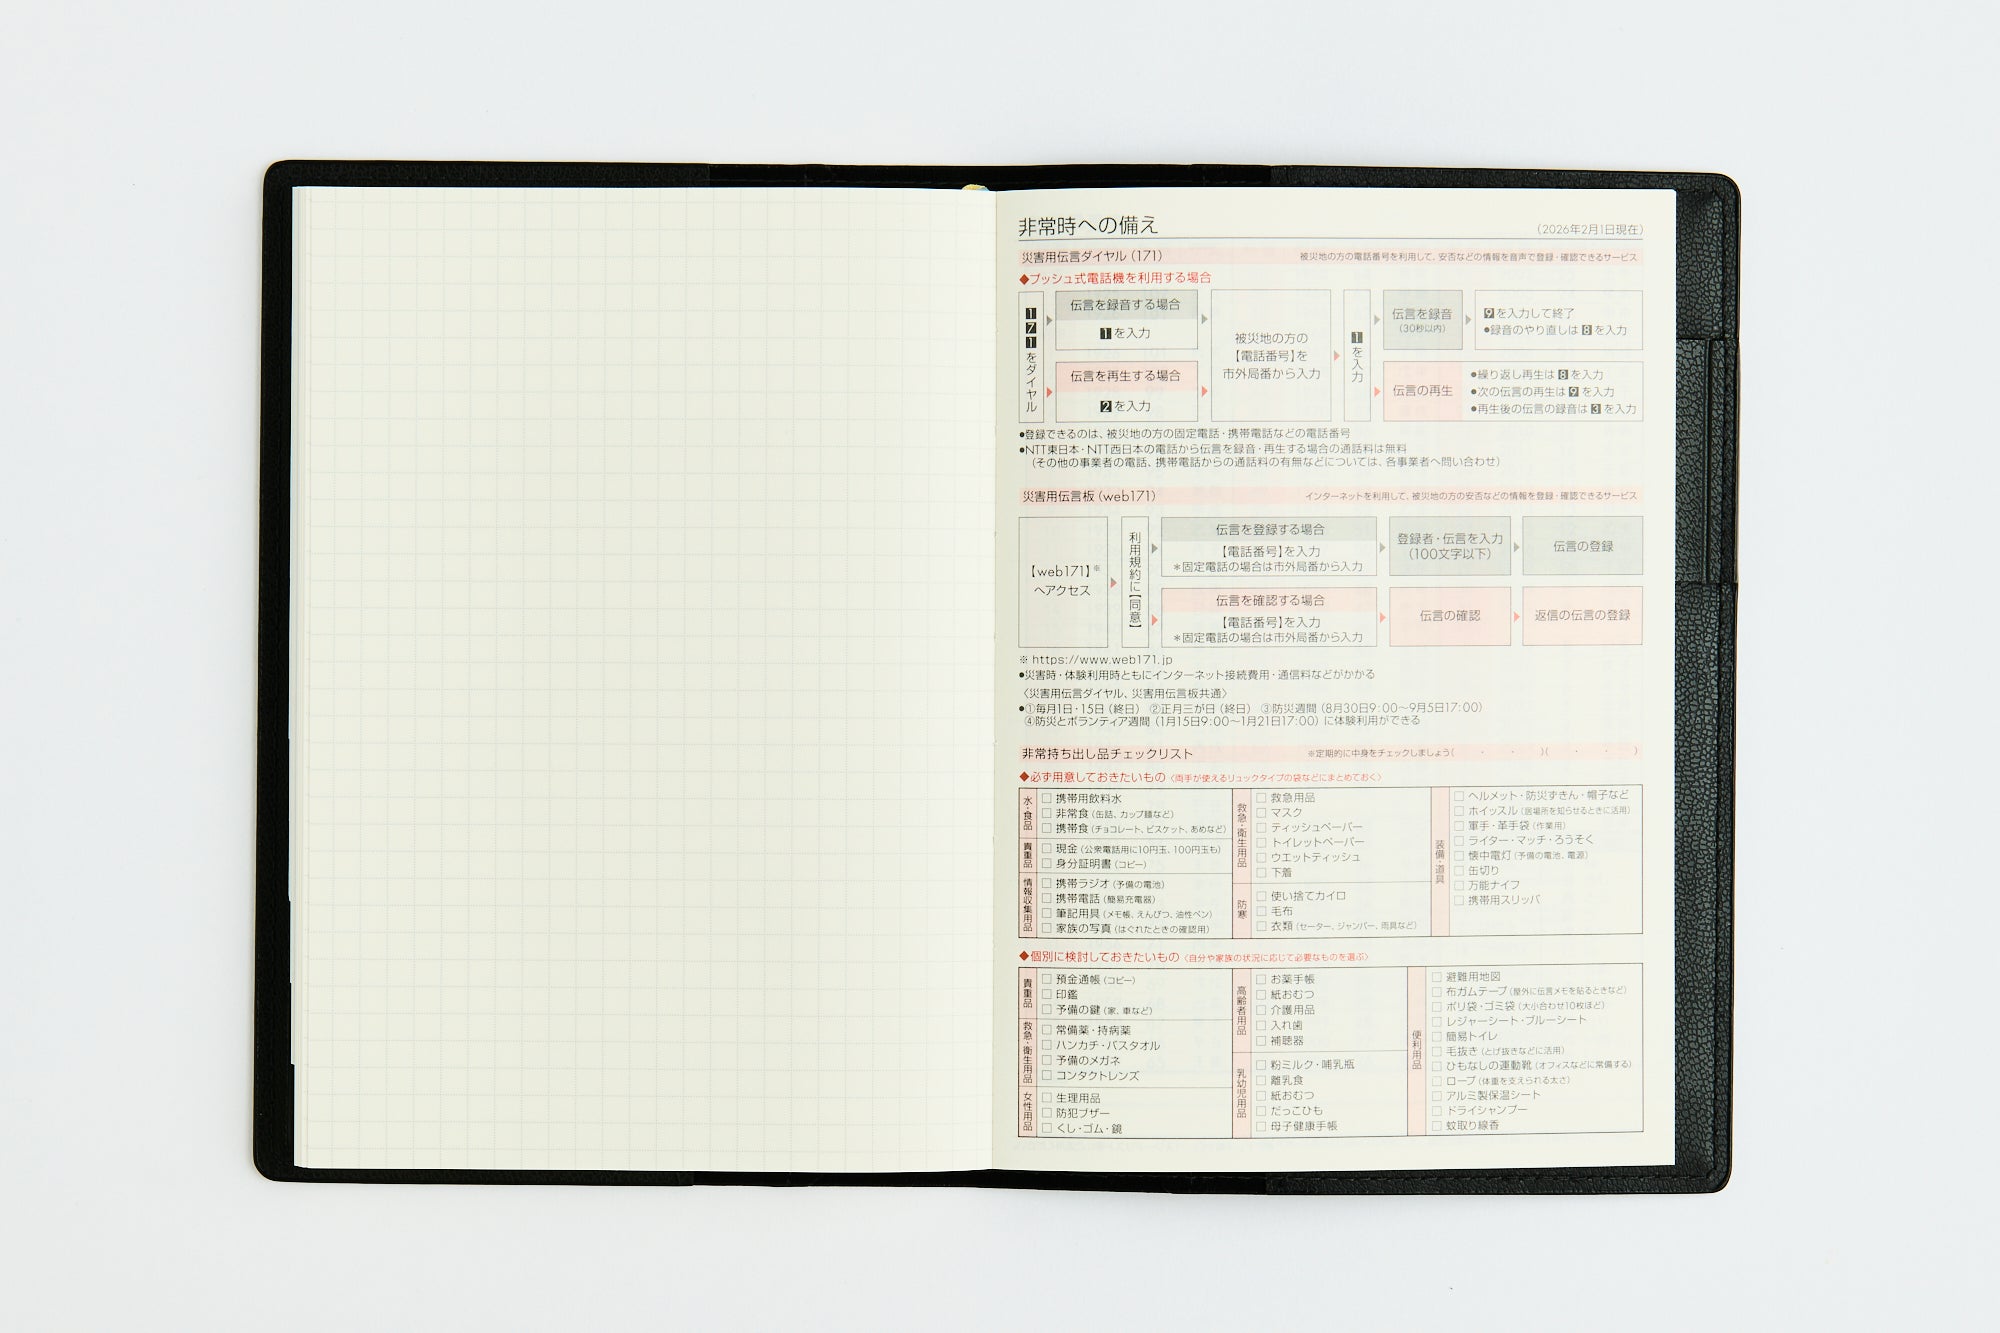 非常時への備え
(2026年2月1日現在)
災害用伝言ダイヤル(171)
被災地の方の電話番号を利用して、安否などの情報を音声で登録・確認できるサービス
◆プッシュ式電話機を利用する場合
171をダイヤル
伝言を録音する場合
1を入力
伝言を再生する場合
2を入力
被災地の方の
【電話番号】を
市外局番から入力
1を入力
伝言を録音
(30秒以内)
9を入力して終了
●録音のやり直しは8を入力
伝言の再生
●繰り返し再生は8を入力
●次の伝言の再生は9を入力
●再生後の伝言の録音は3を入力
●登録できるのは、被災地の方の固定電話・携帯電話などの電話番号
●NTT東日本・NTT西日本の電話から伝言を録音・再生する場合の通話料は無料
(その他の事業者の電話、携帯電話からの通話料の有無などについては、各事業者へ問い合わせ)
災害用伝言板(web171)
インターネットを利用して、被災地の方の安否などの情報を登録・確認できるサービス
【web171】※
へアクセス
利用規約に【同意】
伝言を登録する場合
【電話番号】を入力
*固定電話の場合は市外局番から入力
登録者・伝言を入力
(100文字以下)
伝言の登録
伝言を確認する場合
【電話番号】を入力
*固定電話の場合は市外局番から入力
伝言の確認
返信の伝言の登録
※ https://www.web171.jp
●災害時・体験利用時ともにインターネット接続費用・通信料などがかかる
〈災害用伝言ダイヤル、災害用伝言板共通〉
●①毎月1日・15日(終日) ②正月三が日(終日) ③防災週間(8月30日9:00〜9月5日17:00)
④防災とボランティア週間(1月15日9:00〜1月21日17:00)に体験利用ができる
非常持ち出し品チェックリスト
※定期的に中身をチェックしましょう( ・ ・ )( ・ ・ )
◆必ず用意しておきたいもの〈両手が使えるリュックタイプの袋などにまとめておく〉
水・食品
□携帯用飲料水
□非常食(缶詰、カップ麺など)
□携帯食(チョコレート、ビスケット、あめなど)
貴重品
□現金(公衆電話用に10円玉、100円玉も)
□身分証明書(コピー)
情報収集用品
□携帯ラジオ(予備の電池)
□携帯電話(簡易充電器)
□筆記用具(メモ帳、えんぴつ、油性ペン)
□家族の写真(はぐれたときの確認用)
救急・衛生用品
□救急用品
□マスク
□ティッシュペーパー
□トイレットペーパー
□ウエットティッシュ
□下着
防寒
□使い捨てカイロ
□毛布
□衣類(セーター、ジャンパー、雨具など)
装備・道具
□ヘルメット・防災ずきん・帽子など
□ホイッスル(居場所を知らせるときに活用)
□軍手・革手袋(作業用)
□ライター・マッチ・ろうそく
□懐中電灯(予備の電池、電源)
□缶切り
□万能ナイフ
□携帯用スリッパ
◆個別に検討しておきたいもの〈自分や家族の状況に応じて必要なものを選ぶ〉
貴重品
□預金通帳(コピー)
□印鑑
□予備の鍵(家、車など)
救急・衛生用品
□常備薬・持病薬
□ハンカチ・バスタオル
□予備のメガネ
□コンタクトレンズ
女性用品
□生理用品
□防犯ブザー
□くし・ゴム・鏡
高齢者用品
□お薬手帳
□紙おむつ
□介護用品
□入れ歯
□補聴器
乳幼児用品
□粉ミルク・哺乳瓶
□離乳食
□紙おむつ
□だっこひも
□母子健康手帳
便利用品
□避難用地図
□布ガムテープ(屋外に伝言メモを貼るときなど)
□ポリ袋・ゴミ袋(大小合わせ10枚ほど)
□レジャーシート・ブルーシート
□簡易トイレ
□毛抜き(とげ抜きなどに活用)
□ひもなしの運動靴(オフィスなどに常備する)
□ロープ(体重を支えられる太さ)
□アルミ製保温シート
□ドライシャンプー
□蚊取り線香